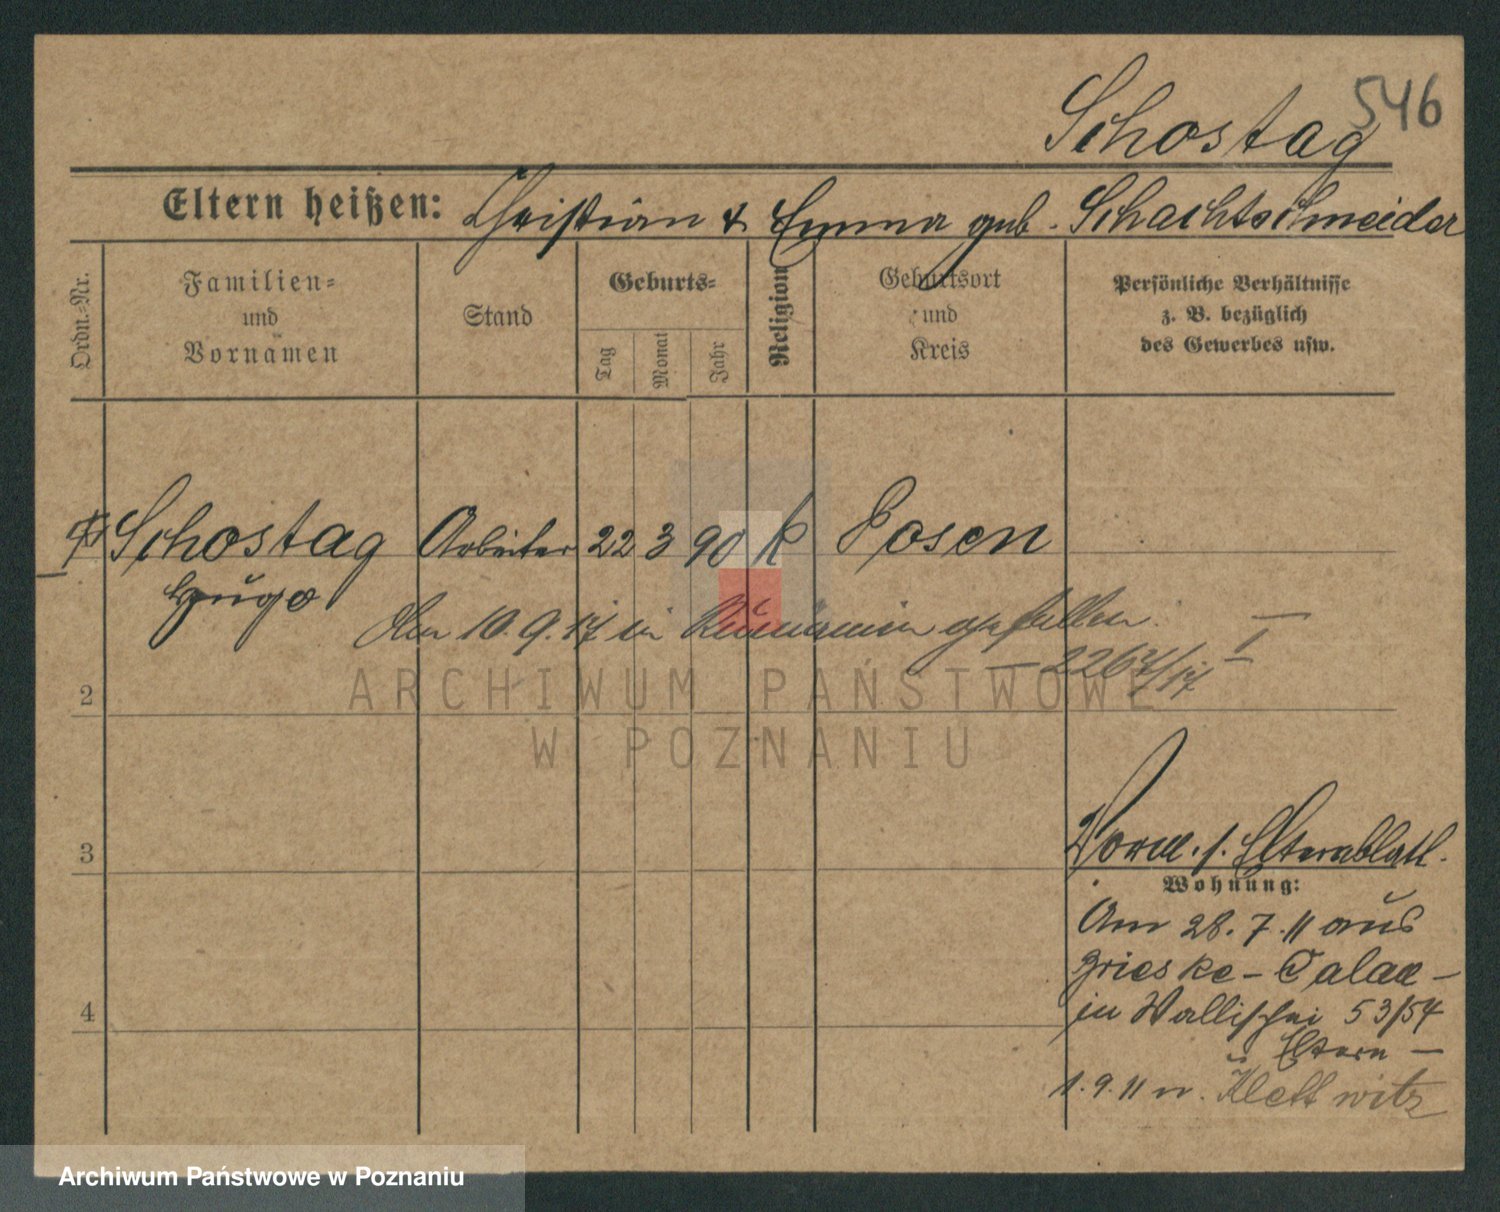 546
Schostag
Eltern heißen: Christian & Emma geb. Schachtschneider
Ordn.-Nr.
Familien=
und
Vornamen
Stand
Geburts=
Tag
Monat
Jahr
Religion
Geburtsort
und
Kreis
Persönliche Verhältnisse
z. B. bezüglich
des Gewerbes usw.
Schostag Arbeiter 22 3 90 k Posen
Hugo
Am 10.9.17 in Rumänien gefallen.
2267/17
ARCHIWUM PAŃSTWOWE
W POZNANIU
2
3
4
Vorm. s. Elternblatt.
Wohnung:
Am 28.7.11 aus
in Wallischei 53/54
Eltern —
1.9.11 n. Klettwitz
Archiwum Państwowe w Poznaniu